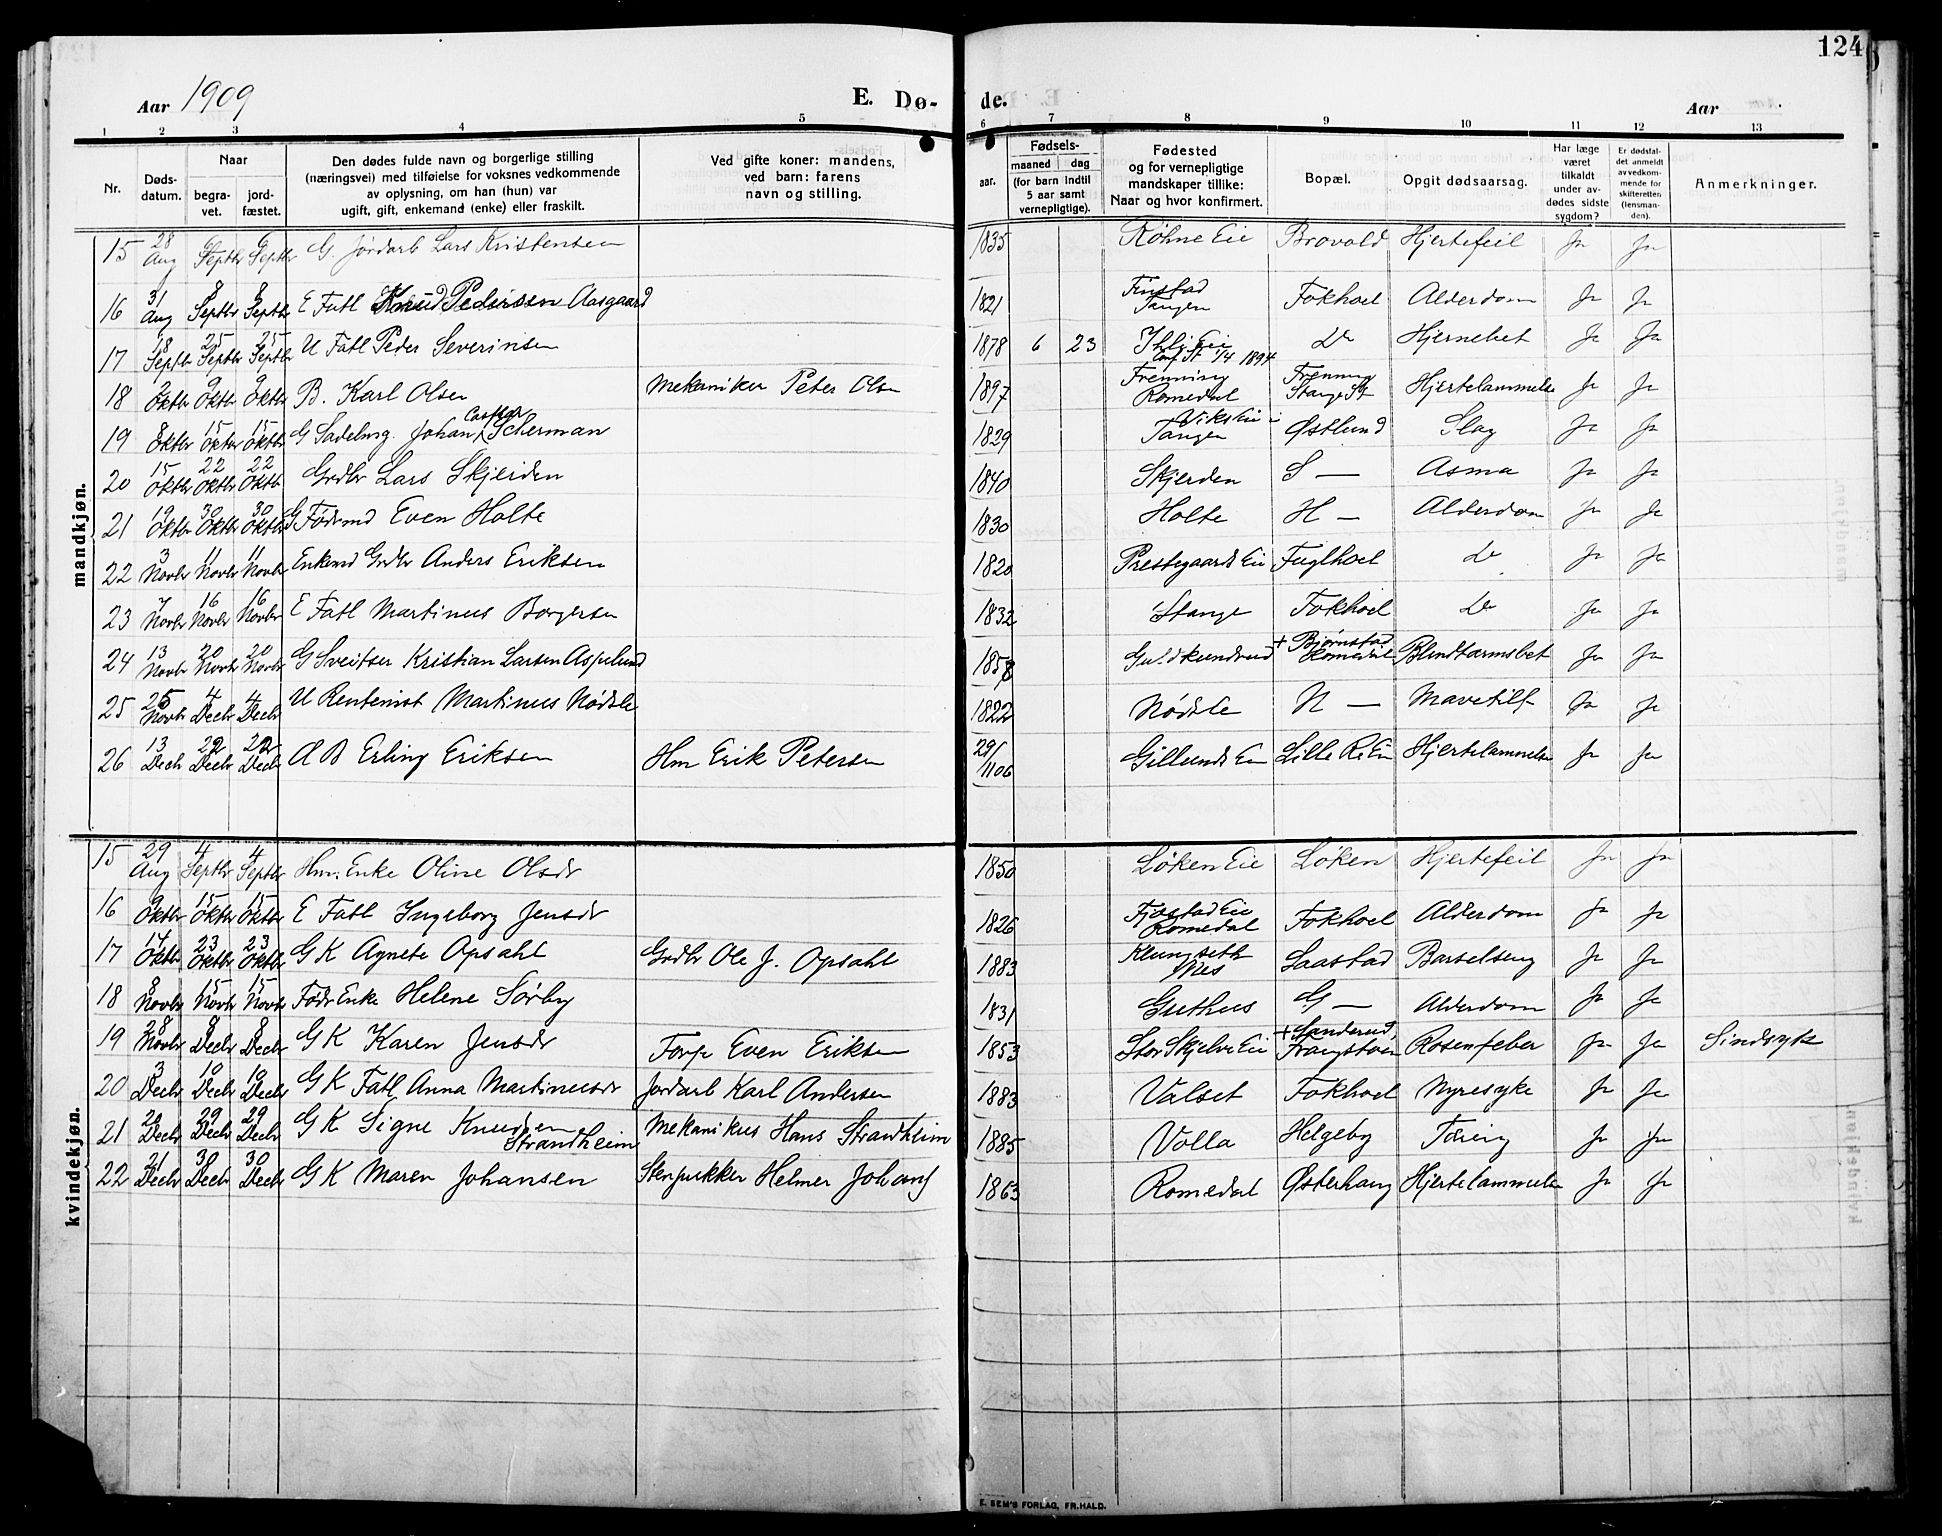 124
Aar 1909 E. Dø- de. Aar
1 2 3 4 5 6 7 8 9 10 11 12 13
Nr.
Døds-
datum.
Naar
begra-
vet.
jord-
fæstet.
Den dødes fulde navn og borgerlige stilling
(næringsvei) med tilføielse for voksnes vedkommende
av oplysning, om han (hun) var
ugift, gift, enkemand (enke) eller fraskilt.
Ved gifte koner: mandens,
ved barn: farens
navn og stilling.
Fødsels-
aar.
maaned dag
(for barn indtil
5 aar samt
vernepligtige).
Fødested
og for vernepligtige
mandskaper tillike:
Naar og hvor konfirmert.
Bopæl.
Opgit dødsaarsag.
Har læge
været
tilkaldt
under av-
dødes sidste
sygdom?
Er dødsfal-
det anmeldt
av vedkom-
mende for
skifteretten
(lensman-
den).
Anmerkninger.
mandkjøn.
15 28 Aug 6 Septbr 6 Septbr G. Jordarb Lars Kristensen 1835 Røhne Eie Brovold Hjertefeil Ja Ja
16 31 Aug 8 Septbr 8 Septbr E Fatl Knud Pedersen Aasgaard 1821 Finstad Tangen Fokhoel Alderdom Ja Ja
17 18 Septbr 25 Septbr 25 Septbr U Fatl Peder Severinsen 1878 6 23 Eie Conf St 1/4 1894 Do Hjernebet Ja Ja
18 Oktbr 9 Oktbr 9 Oktbr B. Karl Olsen Mekaniker Peter Olsen 1897 Frenning Romedal Frenning Stange St Hjertelammelse Ja Ja
19 8 Oktbr 15 Oktbr 15 Oktbr G Sadelmg. Johan Casper Scherman 1829 Viks Eie i Tangen Østlund Slag Ja Ja
20 15 Oktbr 22 Oktbr 22 Oktbr Grdbr Lars Skjerden 1840 Skjerden S — Asma Ja Ja
21 19 Oktbr 30 Oktbr 30 Oktbr G Fødrmd Even Holte 1830 Holte H — Alderdom Ja Ja
22 3 Novbr 11 Novbr 11 Novbr Enkemd Grdbr Anders Eriksen 1820 Prestegaards Eie Fuglhoel do Ja Ja
23 7 Novbr 16 Novbr 16 Novbr E Fatl Martinus Borgersen 1832 Stange Fokhoel do Ja Ja
24 13 Novbr 20 Novbr 20 Novbr G Sveitser Kristian Larsen Aspelund 1858 Guldkundrud + Bjørnstad Romedal Blindtarmsbet Ja Ja
25 Novbr 4 Decbr 4 Decbr U Rentenist Martinus Nødsle 1822 Nødsle N — Mavetilf Ja Ja
26 13 Decb 22 Decb 22 Decb A B Erling Eriksen Hm Erik Petersen 29/11 06 Gillunds Eie Lille Ree Ei Hjertelammelse Ja Ja
kvindekjøn.
15 29 Aug 4 Septbr 4 Septbr Hm. Enke Oline Olsdr 1850 Løken Eie Løken Hjertefeil Ja Ja
16 9 Oktbr 15 Oktbr 15 Oktbr E Fatl Ingeborg Jensdr 1826 Fjøstad Eie Romedal Fokhoel Alderdom Ja Ja
17 14 Oktbr 23 Oktbr 23 Oktbr G K Agnete Opsahl Grdbr Ole J. Opsahl 1883 Klungseth Nes Saastad Barselseng Ja Ja
18 8 Novbr 15 Novbr 15 Novbr Fødr Enke Helene Sørby 1831 Guthus G — Alderdom Ja Ja
19 28 Novbr 8 Decbr 8 Decbr G K Karen Jensdr Forp Even Eriksen 1853 Stor Skjelve Eie + Sanderud, Frangstøen Rosenfeber Ja Ja Sindsyk
20 3 Decbr 10 Decbr 10 Decbr G K Fatl Anna Martinusdr Jordarb Karl Andersen 1883 Valset Fokhoel Nyresyke Ja Ja
21 20 Decbr 29 Decbr 29 Decbr G K Signe Knudsen Strandheim Mekanikus Hans Strandheim 1885 Volla Helgeby Tæring Ja Ja
22 21 Decbr 30 Decbr 30 Decbr G K Maren Johansen Stenpukker Helmer Johans 1863 Romedal Østerhaug Hjertelammelse Ja Ja
E. SEM'S FORLAG, FR.HALD.